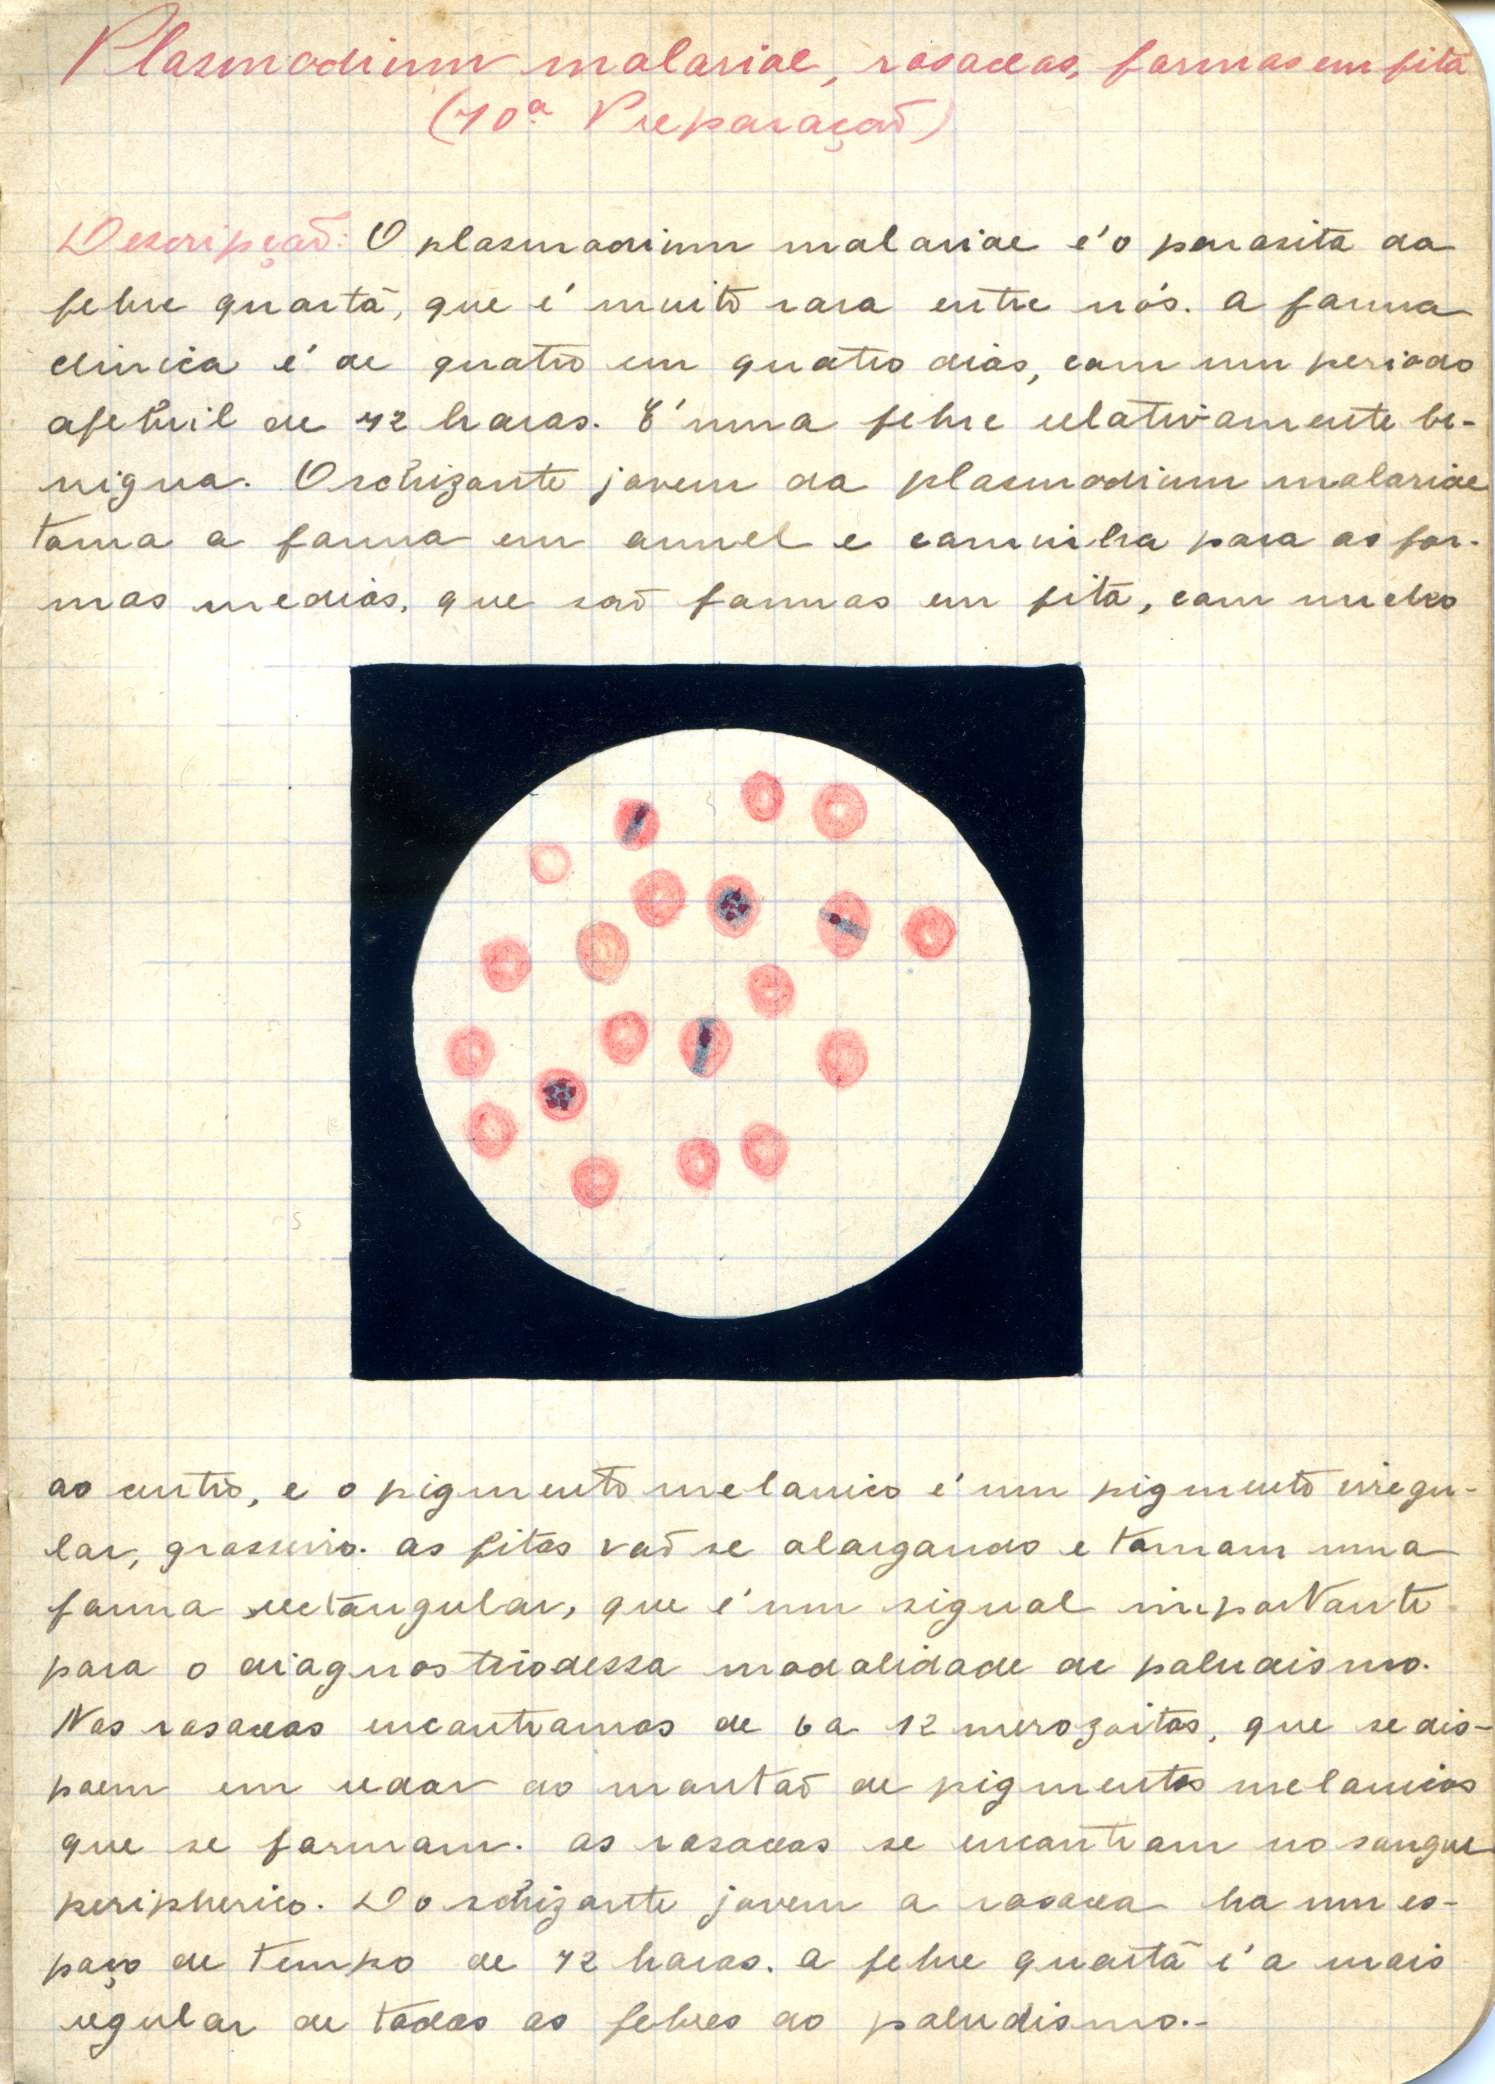 Plasmodium malariae, rosaceas, formas em fita
(10ª Preparação)
Descripção: O plasmodium malariae é o parasita da
febre quartã, que é muito rara entre nós. A forma
clinica é de quatro em quatro dias, com um periodo
afebril de 72 horas. É uma febre relativamente be-
nigna. O schizonte jovem da plasmodium malariae
toma a forma em annel e caminha para as for-
mas medias, que são formas em fita, com nucleo
ao centro, e o pigmento melanico é um pigmento irregu-
lar, grosseiro. As fitas vão se alargando e tomam uma
forma rectangular, que é um signal importante
para o diagnostico dessa modalidade de paludismo.
Nas rosaceas encontramos de 6 a 12 merozoitos, que se dis-
poem em redor do montão de pigmentos melanicos
que se formam. As rosaceas se encontram no sangue
peripherico. Do schizonte jovem a rosacea ha um es-
paço de tempo de 72 horas. A febre quartã é a mais
regular de todas as febres do paludismo.-